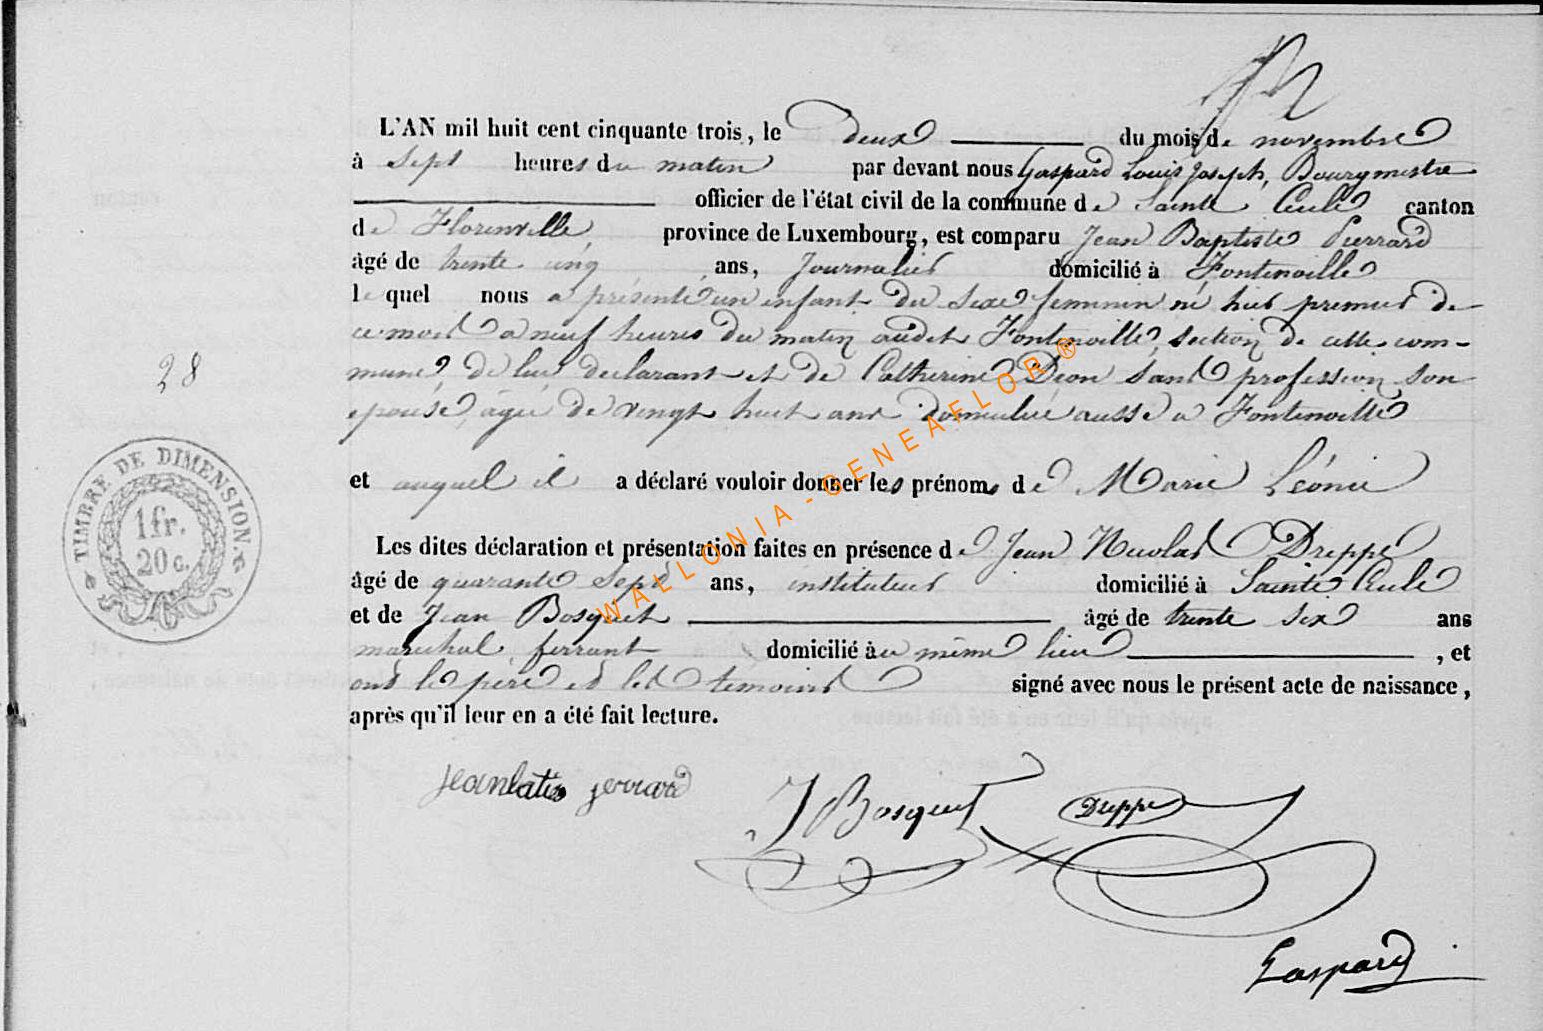 L'AN mil huit cent cinquante trois, le deux du mois de novembre
à sept heures du matin par devant nous Gaspard Louis Joseph, Bourgmestre
officier de l'état civil de la commune de Sainte Cecile canton
de Florenville province de Luxembourg, est comparu Jean Baptiste Pierrard
âgé de trente cinq ans, Journalier domicilié à Fontenoille
le quel nous a présenté un enfant du sexe feminin né hier premier de
ce mois a neuf heures du matin audit Fontenoille, section de cette com-
mune, de lui declarant et de Catherine Dion sans profession son
epouse, agée de vingt huit ans domiciliée aussi a Fontenoille
28
et auquel il a déclaré vouloir donner les prénoms de Marie Léonie
TIMBRE DE DIMENSION.
1 fr.
20 c.
Les dites déclaration et présentation faites en présence de Jean Nicolas Dreppe
âgé de quarante sept ans, instituteur domicilié à Sainte Cecile
et de Jean Bosquet âgé de trente six ans
marechal ferrant domicilié au même lieu, et
ont le père et les temoins signé avec nous le présent acte de naissance,
après qu'il leur en a été fait lecture.
J Bosquet Dreppe
Gaspard
WALLONIA-GENEAFLOR®